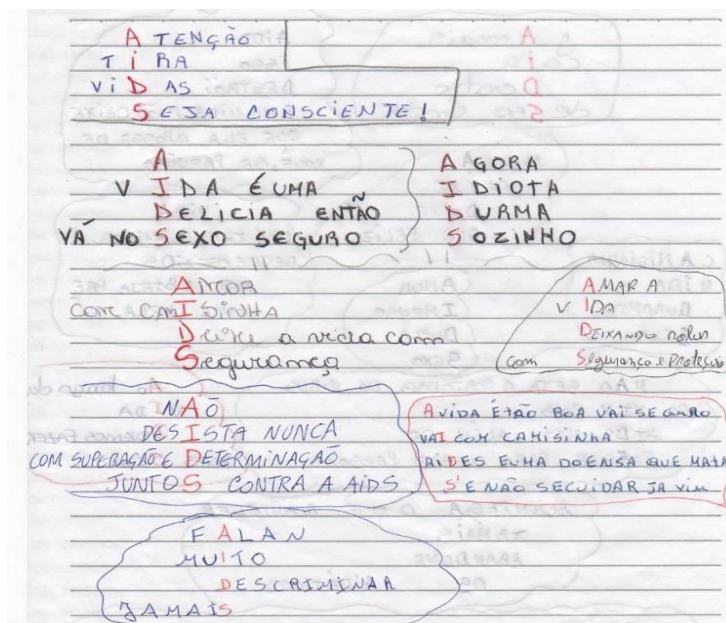 ATENÇÃO
TIRA
ViDAS
SEJA CONSCIENTE!
A
VIDA É UMA
DELICIA ENTÃO
VÁ NO SEXO SEGURO
AGORA
IDIOTA
DURMA
SOZINHO
AMOR
com CAMISINHA
Deixe a vida com
Segurança
AMAR A
VIDA
DEIXANDO
com Segurança e Proteção
NÃO
DESISTA NUNCA
COM SUPERAÇÃO E DETERMINAÇÃO
JUNTOS CONTRA A AiDS
A VIDA É TÃO BOA VAI SEGURO
VAI COM CAMISINHA
AIDES EUMA DOENSA QUE MATA
S'E NÃO SECUIDAR JA VIU
FALAN
MUITO
DESCRIMINAR
JAMAIS